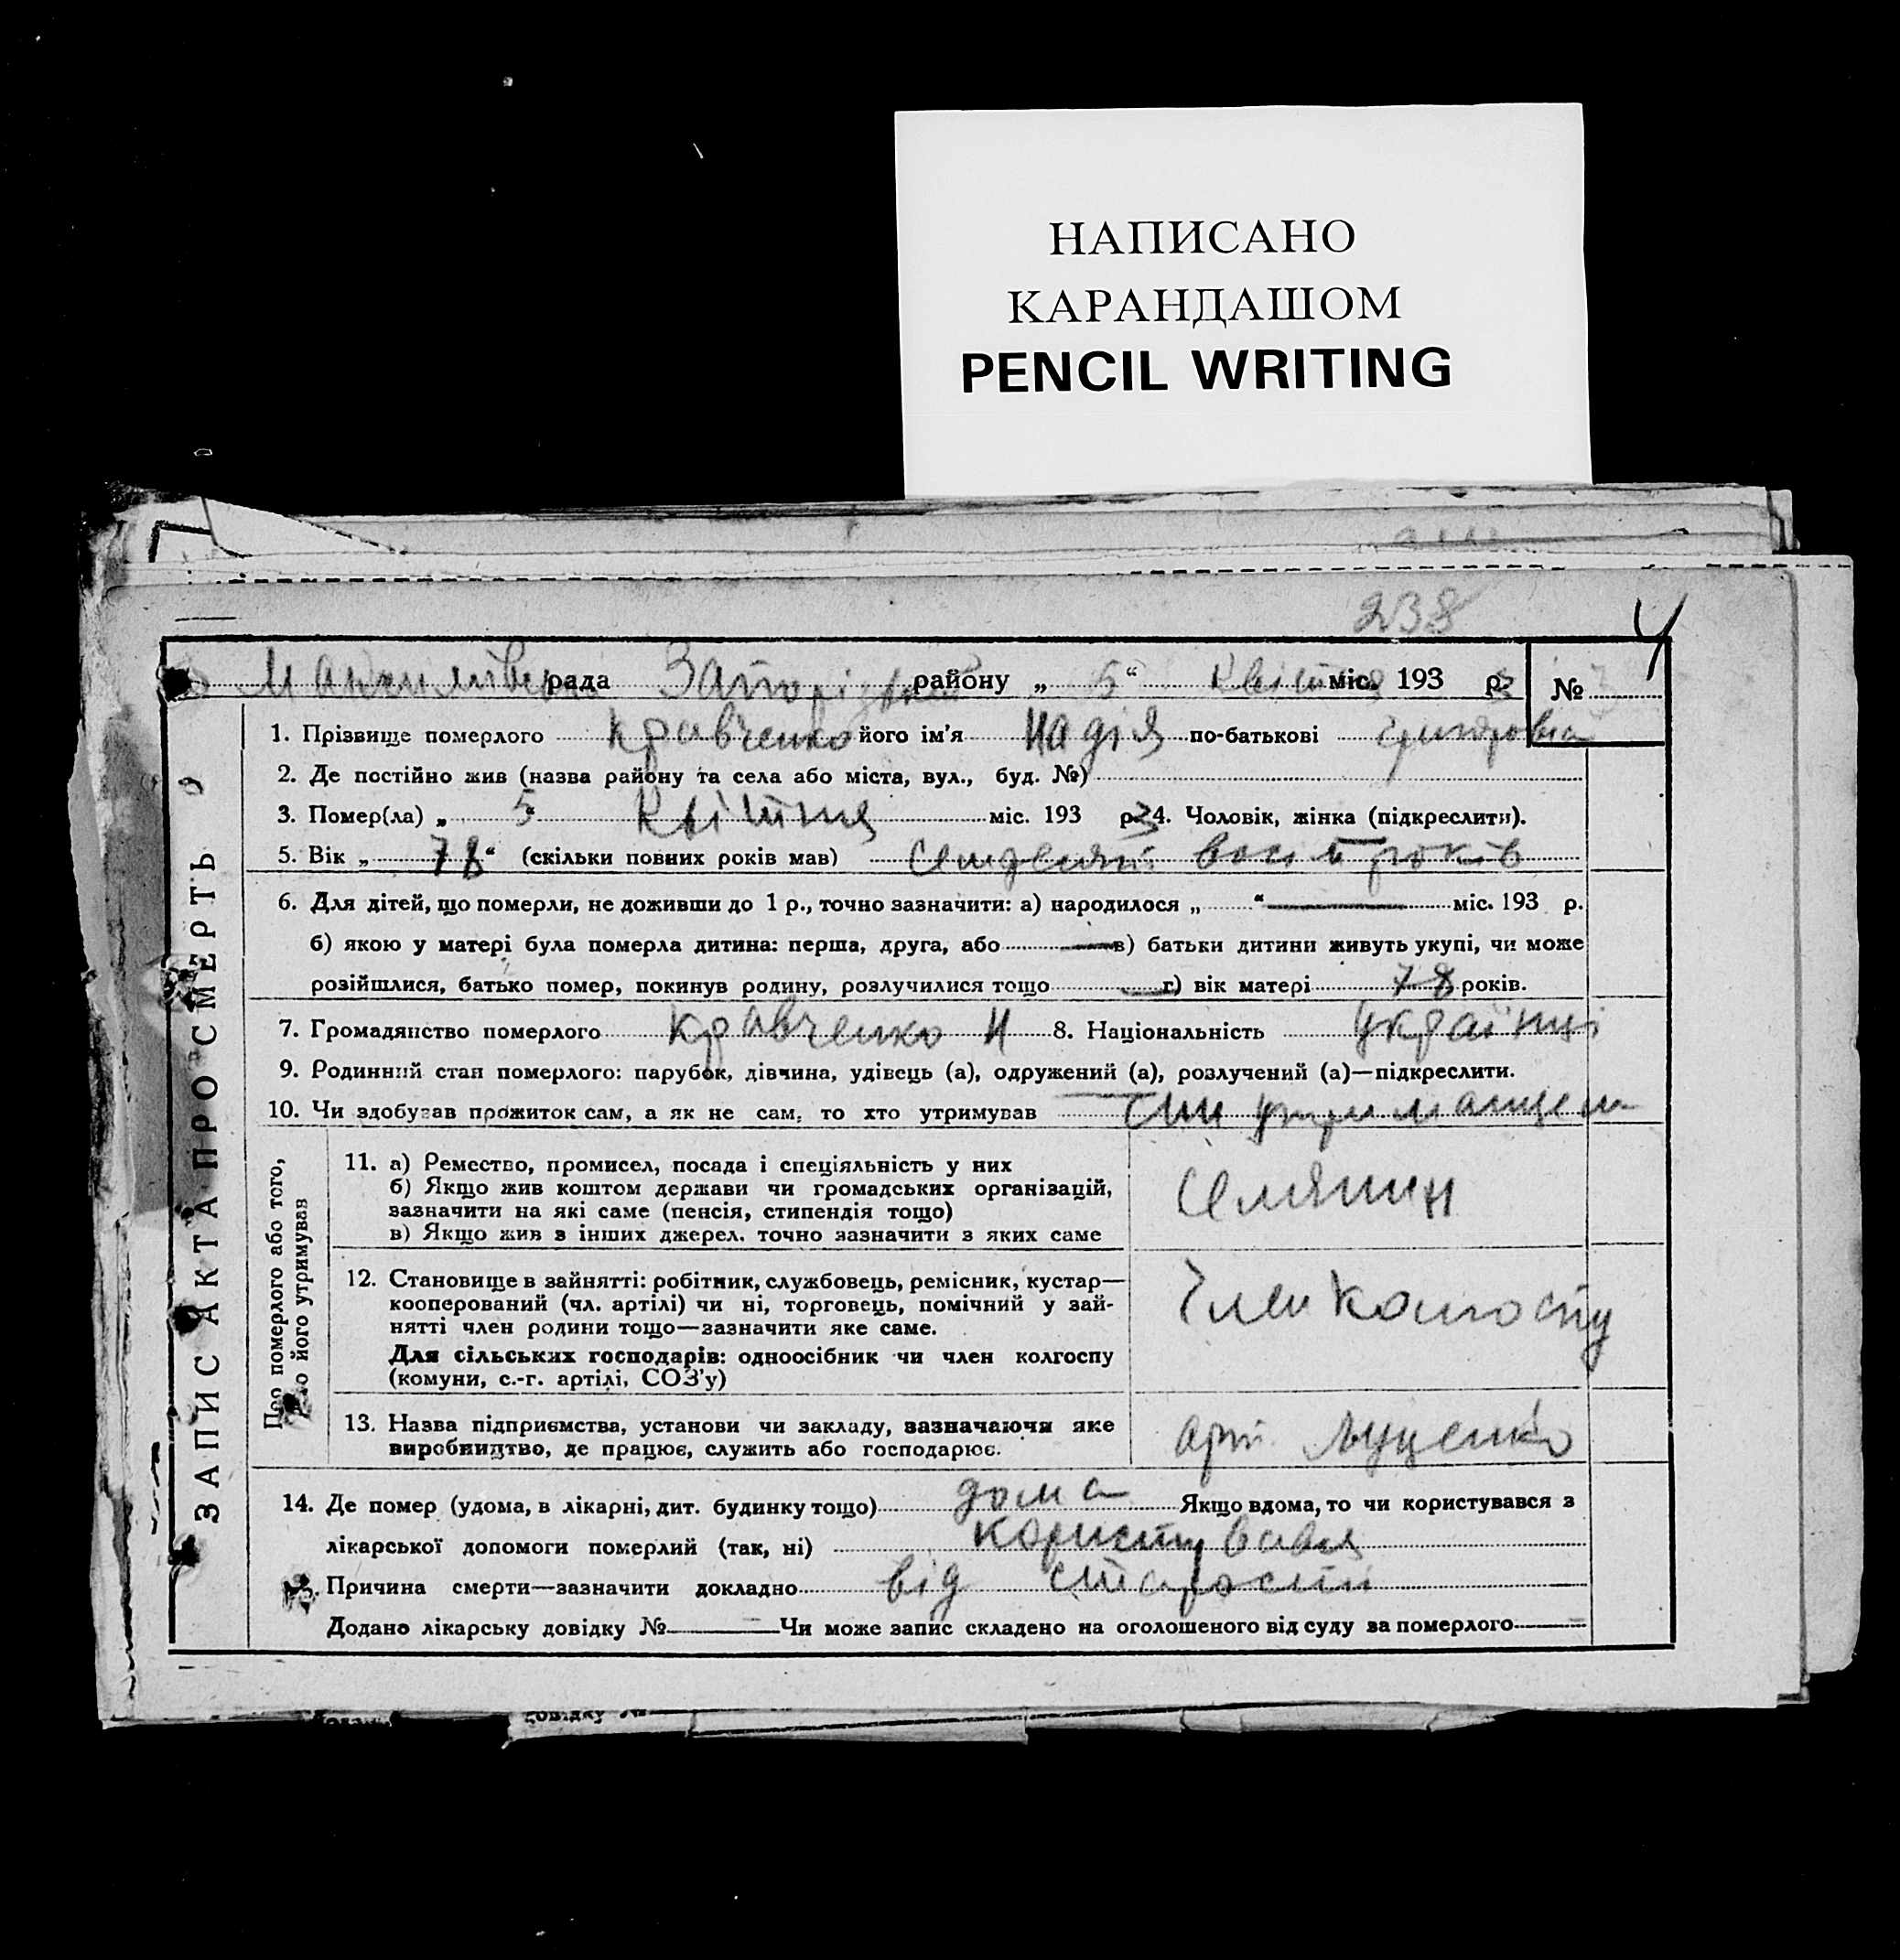 НАПИСАНО
КАРАНДАШОМ
PENCIL WRITING
238
рада району „ 5 “ Квітня міс. 193 р. №
1. Прізвище померлого Кравченко його ім'я Надія по-батькові
2. Де постійно жив (назва району та села або міста, вул., буд. №)
3. Помер(ла) „ 5 Квітня міс. 193 р. 4. Чоловік, жінка (підкреслити).
5. Вік „ 78 “ (скільки повних років мав) років
6. Для дітей, що померли, не доживши до 1 р., точно зазначити: а) народилося „ “ міс. 193 р.
б) якою у матері була померла дитина: перша, друга, або в) батьки дитини живуть укупі, чи може
розійшлися, батько помер, покинув родину, розлучилися тощо г) вік матері 78 років.
7. Громадянство померлого Кравченко Н 8. Національність
9. Родинний стан померлого: парубок, дівчина, удівець (а), одружений (а), розлучений (а)—підкреслити.
10. Чи здобував прожиток сам, а як не сам, то хто утримував син
ЗАПИС АКТА ПРО СМЕРТЬ
Про померлого або того,
хто його утримував
11. а) Ремество, промисел, посада і спеціяльність у них
б) Якщо жив коштом держави чи громадських організацій,
зазначити на які саме (пенсія, стипендія тощо)
в) Якщо жив з інших джерел, точно зазначити з яких саме
12. Становище в зайнятті: робітник, службовець, ремісник, кустар—
кооперований (чл. артілі) чи ні, торговець, помічний у зай-
нятті член родини тощо—зазначити яке саме.
Для сільських господарів: одноосібник чи член колгоспу
(комуни, с.-г. артілі, СОЗ'у)
Член
13. Назва підприємства, установи чи закладу, зазначаючи яке
виробництво, де працює, служить або господарює.
арт. Луценко
14. Де помер (удома, в лікарні, дит. будинку тощо) дома Якщо вдома, то чи користувався з
лікарської допомоги померлий (так, ні)
Причина смерти—зазначити докладно від старости
Додано лікарську довідку № Чи може запис складено на оголошеного від суду за померлого